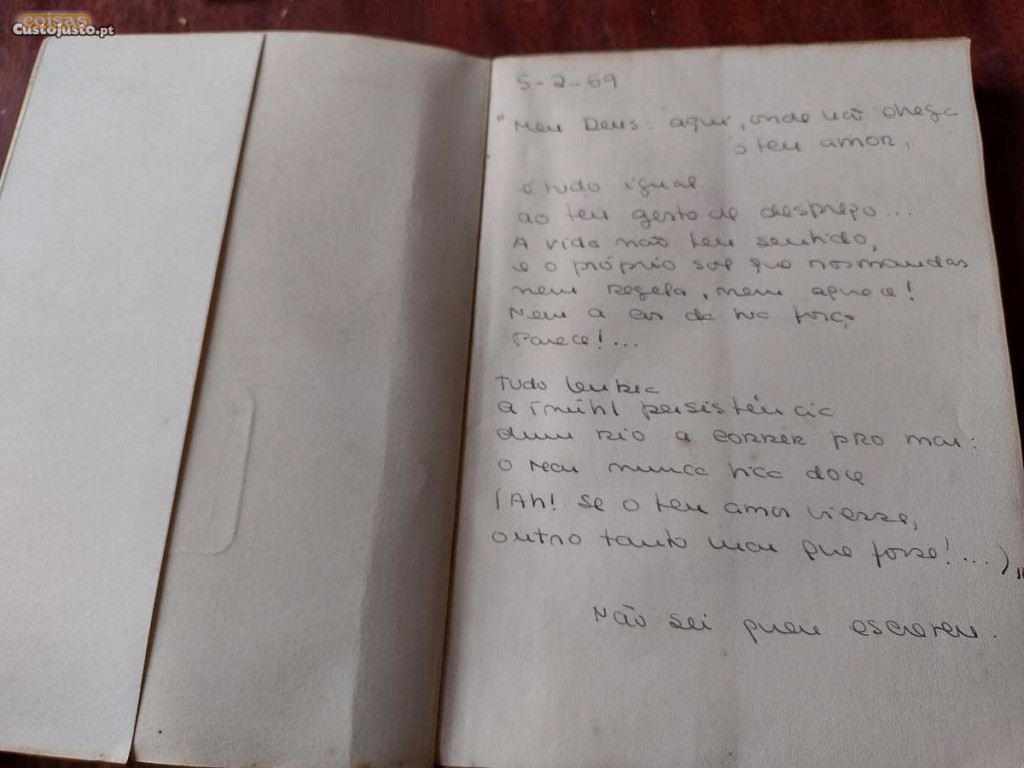 coisas
Custojusto.pt
5-2-69
"Meu Deus: aqui, onde não chega
o teu amor,
é tudo igual
ao teu gesto de desprezo...
A vida não tem sentido,
e o próprio sol que nos mandas
nem regela, nem aquece!
Nem a cor da tua força
Parece!...
Tudo lembra
a inútil persistência
dum rio a correr pro mar:
o mar nunca fica doce
(Ah! se o teu amor viesse,
outro tanto mar que fosse!...)"
Não sei quem escreveu.